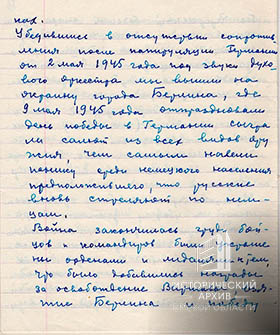 нах.
Убедившись в отсутствии сопротив
ления после капитуляции Германии
от 2 мая 1945 года под звуки духо
вого оркестра мы вышли на
окраину города Берлина, где
9 мая 1945 отпраздновали
день победы в Германии сыгра
ли салют из всех видов ору
жия, чем самым навели
панику среди немецкого населения
предположившего, что русские
вновь стреляют по нем
цам.
Война закончилась грудь бой
цов и командиров были украше
ны орденами и медалями к тем
что было добавились награды
за освобождение Варшавы, взя
тие Берлина и победу
ИСТОРИЧЕСКИЙ
АРХИВ
ОМСКОЙ ОБЛАСТИ